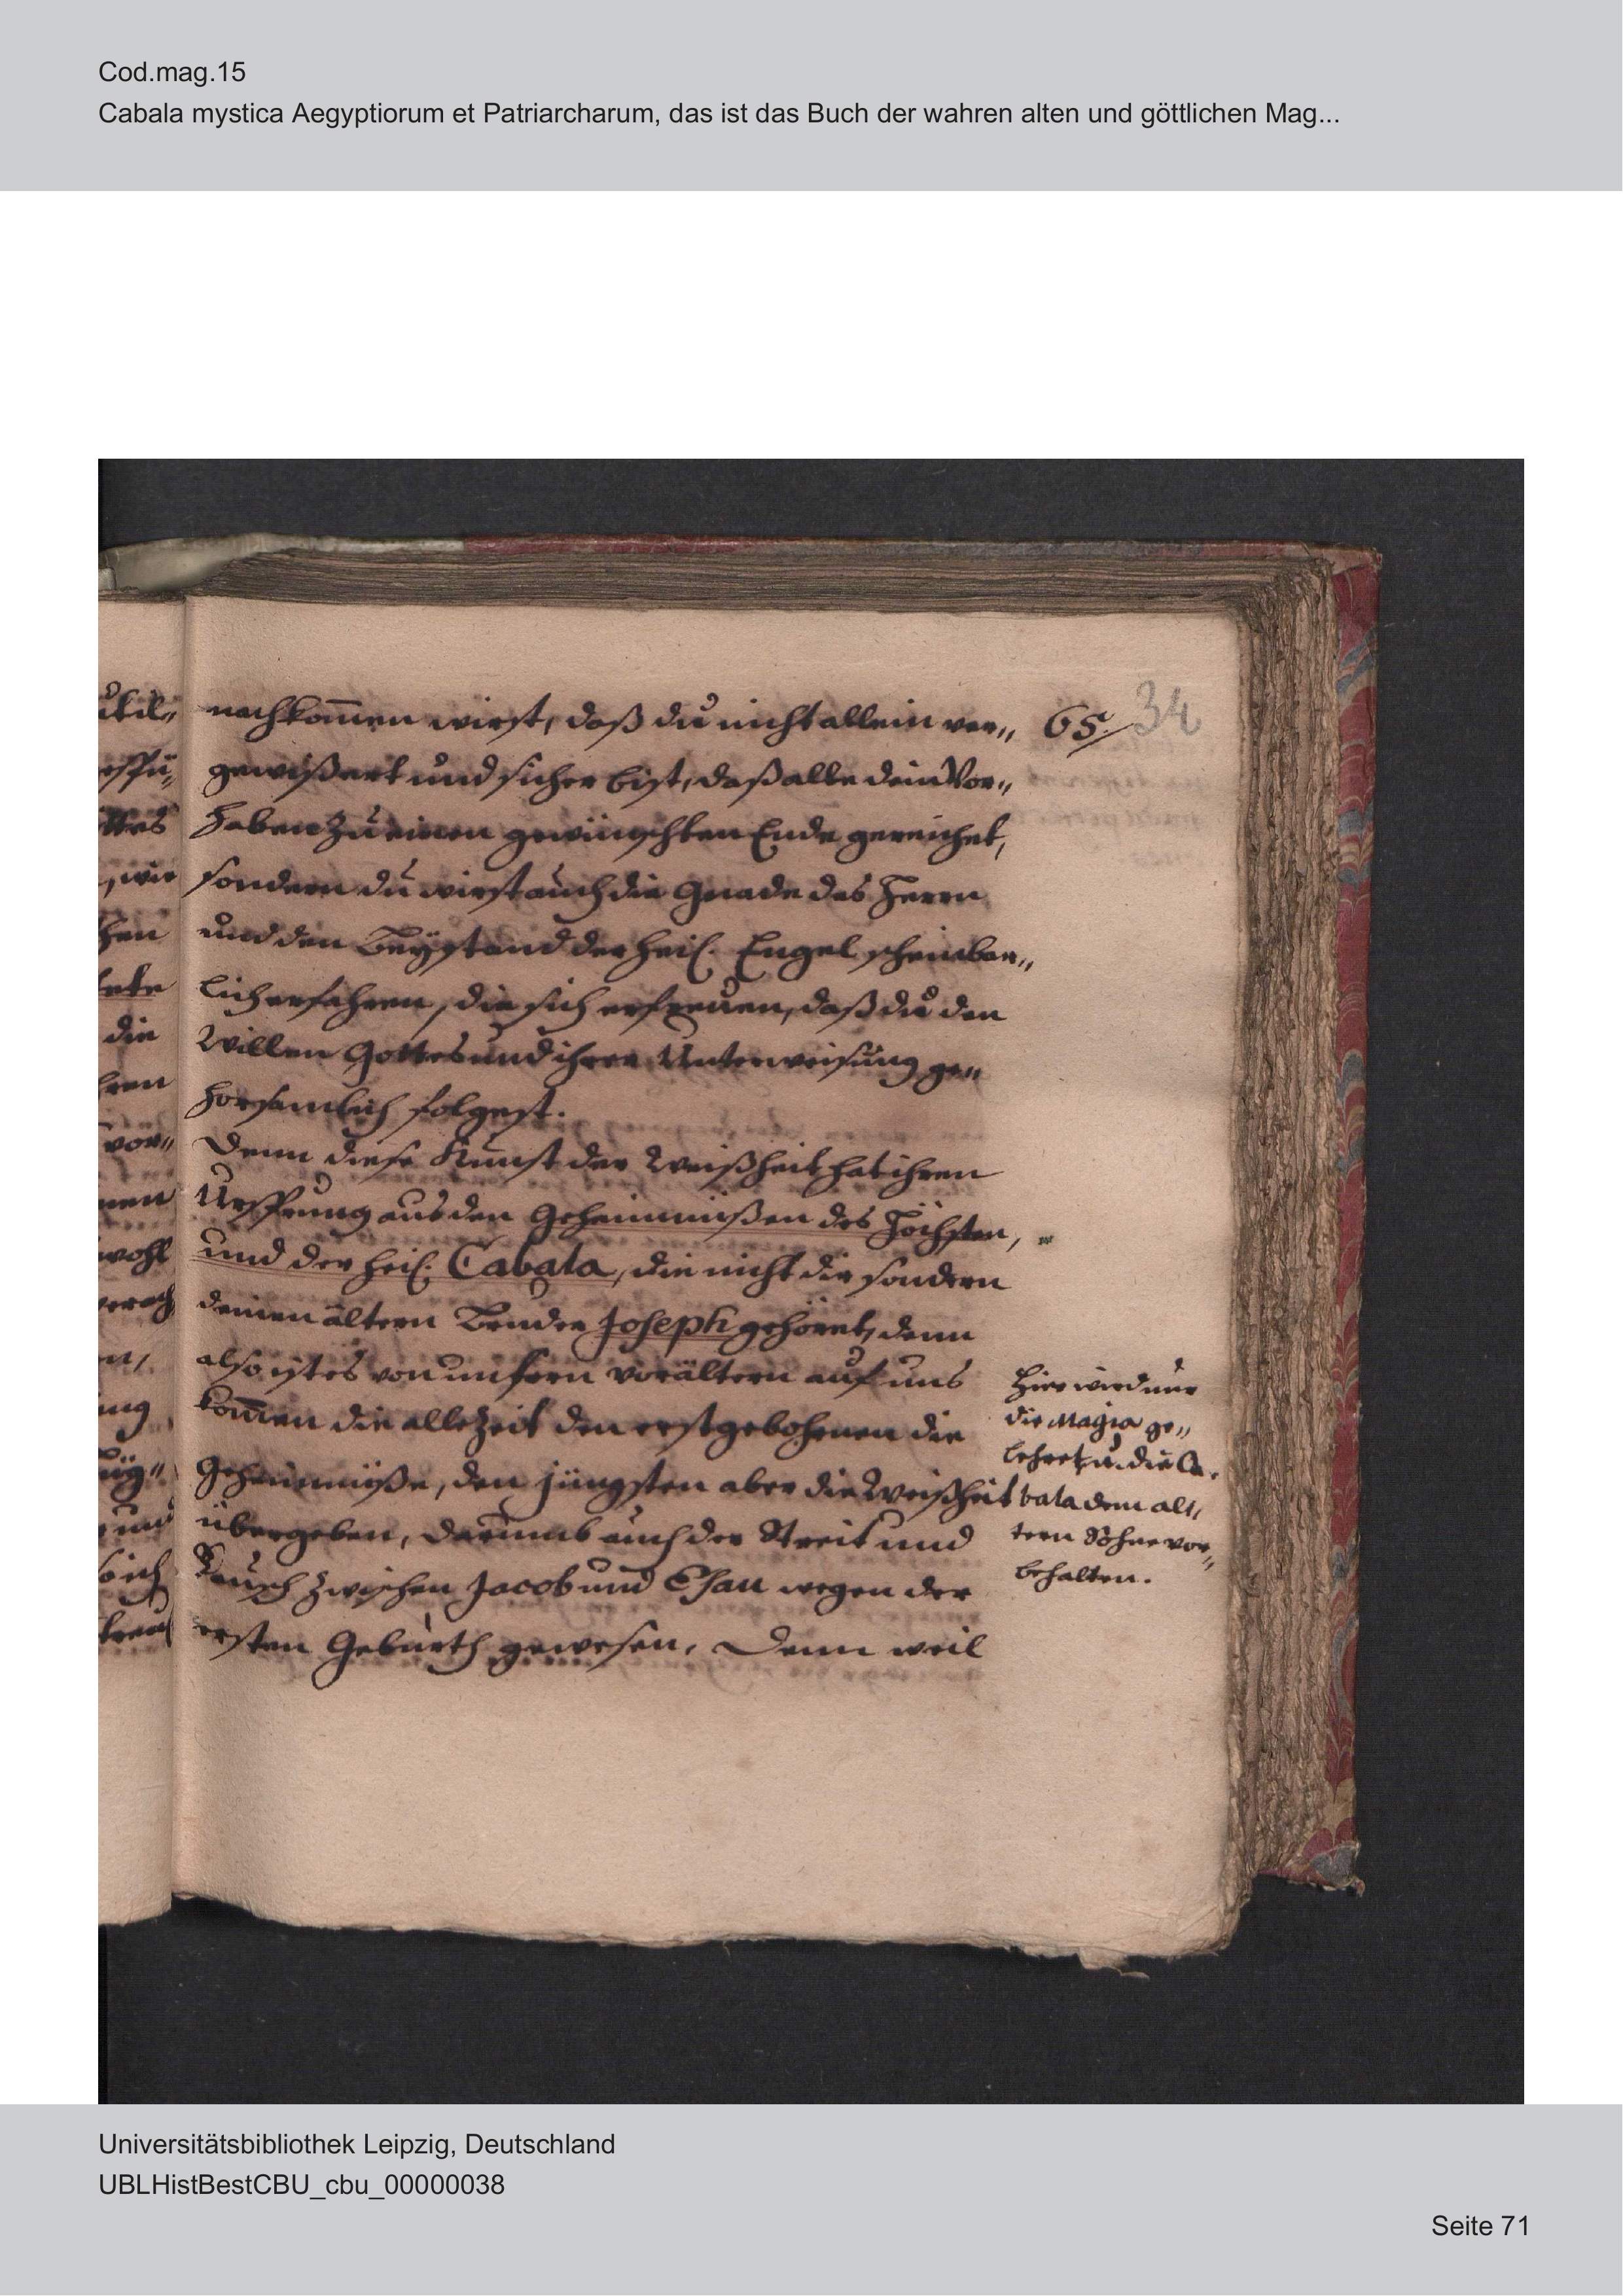 Cod.mag.15
Cabala mystica Aegyptiorum et Patriarcharum, das ist das Buch der wahren alten und göttlichen Mag...
65. 34
nachkom̄en wirst, daß du nicht allein ver„
gewißert und sicher bist, daß alle dein Vor„
haben zu einen gewünschten Ende gereichet,
sondern du wirst auch die Gnade des Herrn
und den Beystand der heil. Engel scheinbar„
lich erfahren, die sich erfreuen, daß du den
Willen Gottes und ihrer Unterweisung ge„
horsamlich folgest.
Denn diese Kunst der Weißheit hat ihren
Ursprung aus den Geheimnüßen des Höchsten,
und der heil. Cabala, die nicht dir sondern
deinen ältern Bruder Joseph gehöret, denn
also ist es von unsern vorältern auf uns
kom̄en die allezeit den erstgebohrnen die
Geheimnüße, den jüngsten aber die Weißheit
übergeben, darumb auch der Streit und
Tausch zwischen Jacob und Esau wegen der
ersten Geburth gewesen. Denn weil
Hier wird nur
die Magia ge„
lehret u. die Ca„
bala dem äl„
tern Sohne vor„
behalten.
die
wohl
Universitätsbibliothek Leipzig, Deutschland
UBLHistBestCBU_cbu_00000038
Seite 71